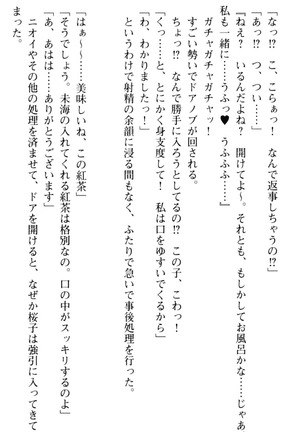 「なっ!? こ、こらぁっ！ なんで返事しちゃうの!?」
「あっ？ つ、つい……」
『ねえ？ いるんだよね？ 開けてよ～。それとも、もしかしてお風呂かな……じゃあ
私も一緒に……うふっ♥ うふふふ……』
ガチャガチャガチャッ！
すごい勢いでドアノブが回される。
ちょっ!? なんで勝手に入ろうとしてるの!? この子、こわっ！
「くっ……と、とにかく身支度して！ 私は口をゆすいでくるから」
「わ、わかりましたっ！」
というわけで射精の余韻に浸る間もなく、ふたりで急いで事後処理を行った。
「はぁ～……美味しいね、この紅茶」
「そうでしょう。未海の入れてくれる紅茶は格別なの。口の中がスッキリするのよ」
「あ、あはは……ありがとうございます」
ニオイやその他の処理を済ませて、ドアを開けると、なぜか桜子は強引に入ってきて
しまった。